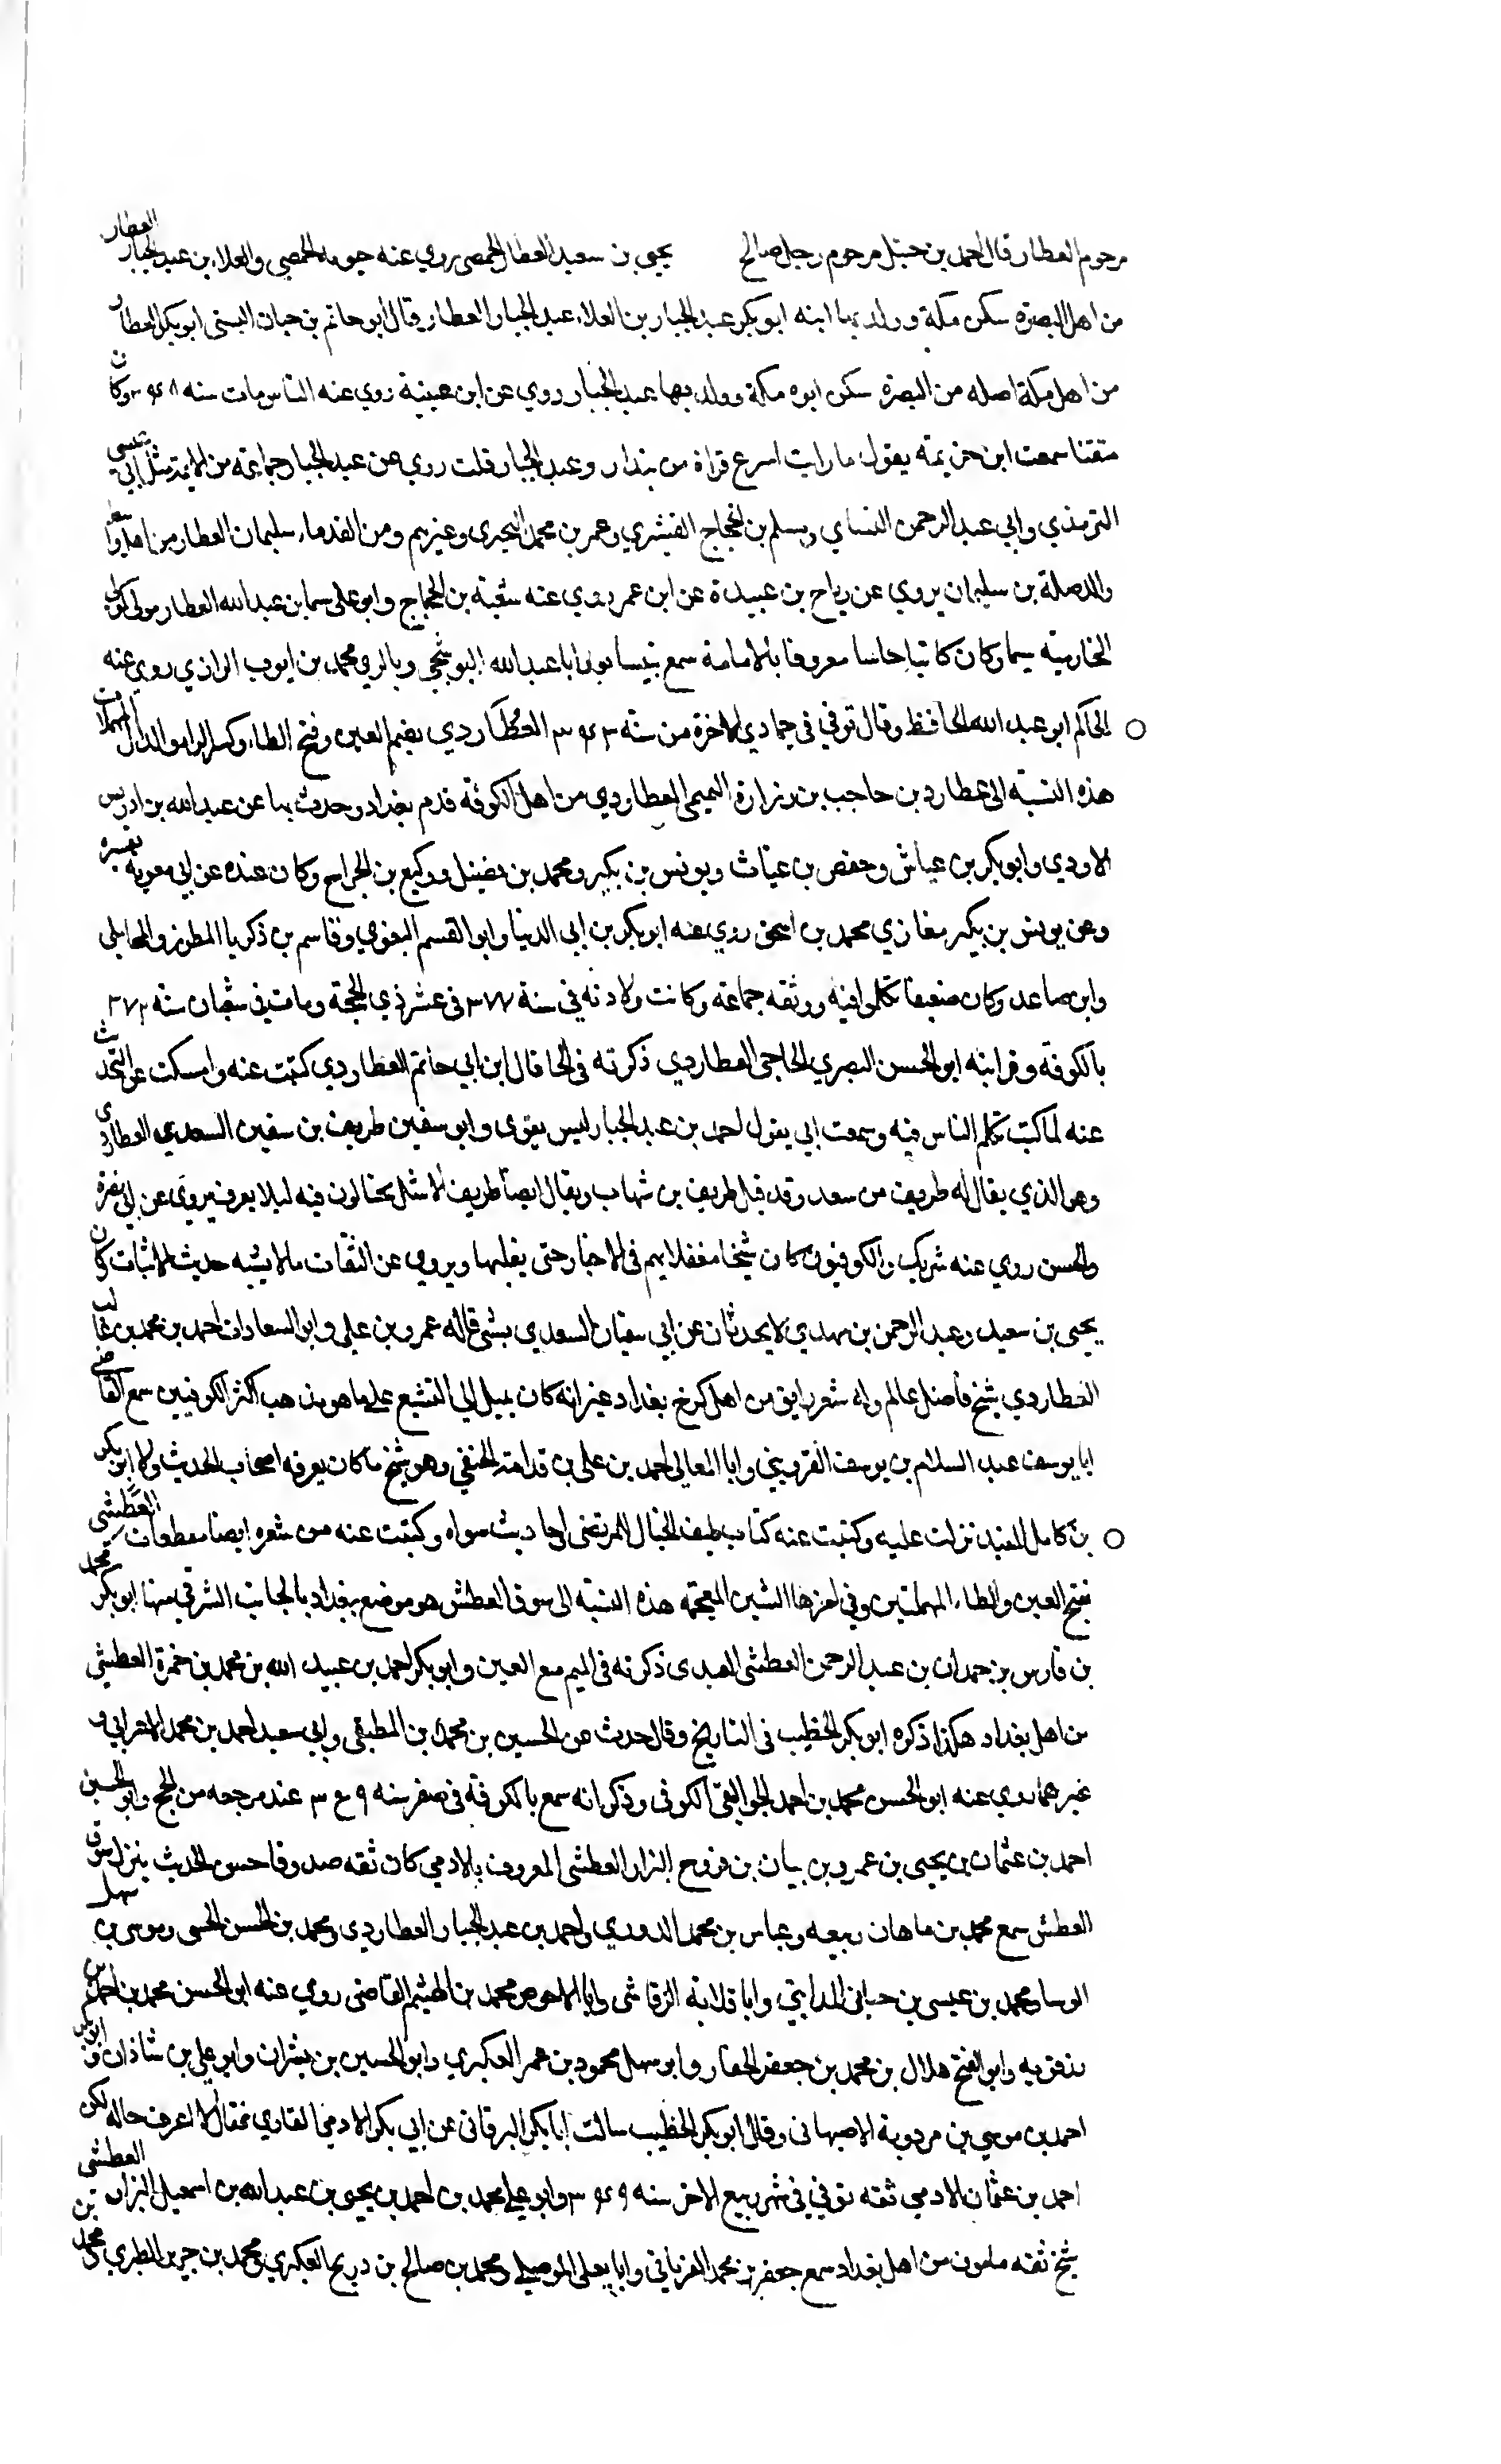 مرحوم العطار قال احمد بن حنبل مرحوم رجل صالح يحيى بن سعيد العطار الحمصي روي عنه حيوه الحمصي والعلاء بن عبد الجبار العطار
من اهل البصره سكن مكة وولد بها ابنه ابو بكر عبد الجبار بن العلاء عبد الجبار العطار قال ابو حاتم بن حبان البستى ابو بكر العطار
من اهل مكة اصله من البصره سكن ابوه مكة وولد بها عبد الجبار روي عن ابن عيينة روي عنه الناس مات سنه وكان
متقنا سمعت ابن خزيمه يقول ما رايت اسرع قراة من بندار وعبد الجبار قلت روي عن عبد الجبار جماعته من الايمة مثل ابي عيسى
الترمذي وابي عبد الرحمن النساي ومسلم بن الحجاج القشيري وعمر بن محمد البجيرى وغيرهم ومن القدماء سليمان العطار من اهل واسط
والد صلة بن سليمان يروي عن رياح بن عبيدة عن ابن عمر روي عنه شعبة بن الحجاج وابو على سما بن عبد الله العطار مولى
سيما وكان كاتبا حاسبا معروفا بالامامة سمع بنيسابور ابا عبد الله البوشنجي وبالري محمد بن ايوب الرازي روي عنه
الحاكم ابو عبد الله الحافظ وقال توفي في جمادي الاخرة من سنة العطاردي بضم العين وفتح الطاء وكسر الراء والدال المهملات
هذه النسبة الى عطارد بن حاجب بن زرارة التميمى العطاردي من اهل الكوفة قدم بغداد وحدث بها عن عبد الله بن ادريس
الاودي وابو بكر بن عياش وحفص بن غياث ويونس بن بكير ومحمد بن فضيل ووكيع بن الجراح وكان عنده عن ابي معوية تفسيره
وعن يونس بن بكير مغازي محمد بن اسحق روي عنه ابو بكر بن ابي الدنيا وابو القسم البغوي وقاسم بن ذكريا المطرز والمحاملي
وابن صاعد وكان ضعيفا تكلموا فيه ووثقه جماعة وكانت ولادته في سنة في عشر ذي الحجة ومات في شعبان سنة
بالكوفة وقرابته ابو الحسن البصري الحاجبى العطاردي ذكرته في الحا قال ابن ابي حاتم العطاردي كتبت عنه وامسكت عن التحديث
عنه لما كتب تكلم الناس فيه وسمعت ابي يقول احمد بن عبد الجبار ليس بقوى وابو سفين طريف بن سفين السعدي العطاردي
وهو الذي يقال له طريف من سعد وقد قيل طريف بن شهاب ويقال ايضا طريف الاشل يحتالون فيه ليلا يعرف يروى عن ابي نضرة
والحسن روي عنه شريك والكوفيون كان شيخا مغفلا يهم في الاخبار حتى يقلبها ويروي عن الثقات مالا يشبه حديث الاثبات كان
يحيى بن سعيد وعبد الرحمن بن مهدي لا يحدثان عن ابي سفيان السعدي بشئ قاله عمرو بن على وابو السعادات احمد بن محمد بن غالب
العطاردي شيخ فاضل عالم وله شعر رايق من اهل كرخ بغداد غير انه كان يميل الي التشيع على ما هو مذهب اكثر الكوفيين سمع القاضى
ابا يوسف عبد السلام بن يوسف القزويني وابا المعالي احمد بن على بن قدامة الحنفي وهو شيخ ما كان يعرفه اصحاب الحديث ولا ابو بكر
بن كامل المفيد نزلت عليه وكتبت عنه كتاب طيف الخيال للمرتضى احاديث سواه وكتبت عنه من شعره ايضا مقطعات العطشى
بفتح العين والطاء المهملتين وفي اخرها الشين المعجمه هذه النسبة الى سوق العطش هو موضع ببغداد بالجانب الشرقي منها ابو بكر محمد
بن فارس بن حمدان بن عبد الرحمن العطشى العبدى ذكرته في الميم مع العين وابو بكر احمد بن عبيد الله بن محمد بن حمزة العطيشي
من اهل بغداد هكذا ذكره ابو بكر الخطيب في التاريخ وقال حدث عن الحسين بن محمد بن المطبقى وابي سعيد احمد بن محمد الاعرابي و
غيرهما روي عنه ابو الحسن محمد بن احمد الجواليقي الكوفي وذكر انه سمع بالكوفة في صفر سنه عند مرجعه من الحج وابو الحسين
احمد بن عثمان بن يحيى بن عمرو بن بيان بن فروح البزاز العطشى المعروف بالادمي كان ثقه صدوقا حسن الحديث ينزل سوق
العطش سمع محمد بن ماهان ربيعه وعباس بن محمد الدوري واحمد بن عبد الجبار العطاردى ومحمد بن الحسن وموسى بن سهل
الوسا ومحمد بن عيسى بن حبانى المدايني وابا قلابة الرقاشي وابا الاحوص محمد بن الهيثم القاضى روي عنه ابو الحسن محمد بن احمد بن
وابو الفتح هلال بن محمد بن جعفر الحفار وابو سهل محمود بن عمر العكبري وابو الحسين بن بشران وابو علي بن شاذان و ابو بكر
احمد بن موسي بن مردوية الاصبهانى وقال ابو بكر الخطيب سالت ابا بكر البرقانى عن ابي بكر الادمي القاري فقال لا اعرف حاله لكن
احمد بن عثمان الادمي ثقه توفي في شهر ربيع الاخر سنه وابو على محمد بن احمد بن يحيى بن عبد الله بن اسمعيل البزاز العطشى
شيخ ثقه مامون من اهل بغداد سمع جعفر بن محمد الفريابي وابا يعلى الموصلي ومحمد بن صالح بن دريح العكبري ومحمد بن جرير الطبري محمد بن